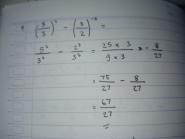 (5/3)² - (3/2)⁻³ =
5²/3² - 2³/3³ = 25 × 3/9 × 3 - 8/27
= 75/27 - 8/27
= 67/27